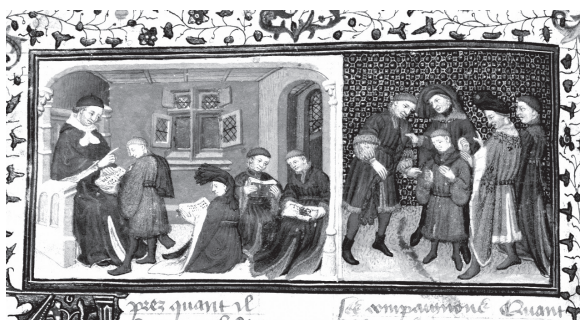 Aprez quant il
ses compaignons Quant